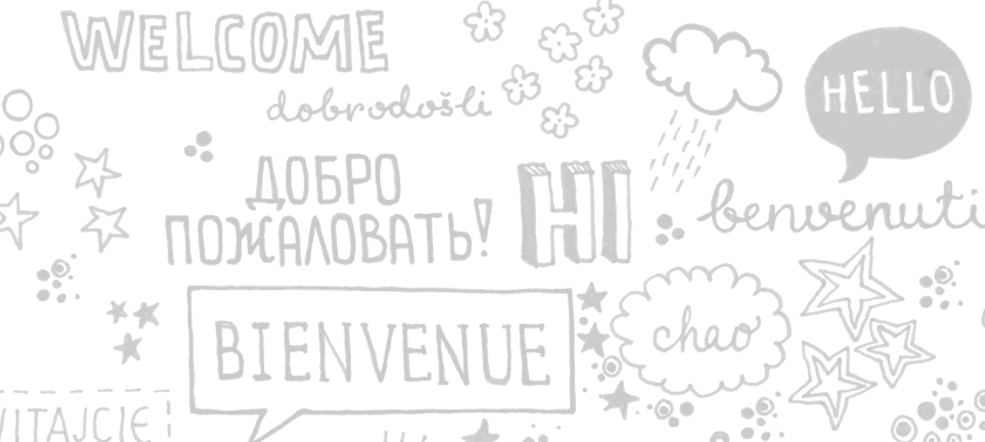 WELCOME
dobrodošli
HELLO
ДОБРО
ПОЖАЛОВАТЬ!
HI
benvenuti
BIENVENUE
chao
WITAJCIE